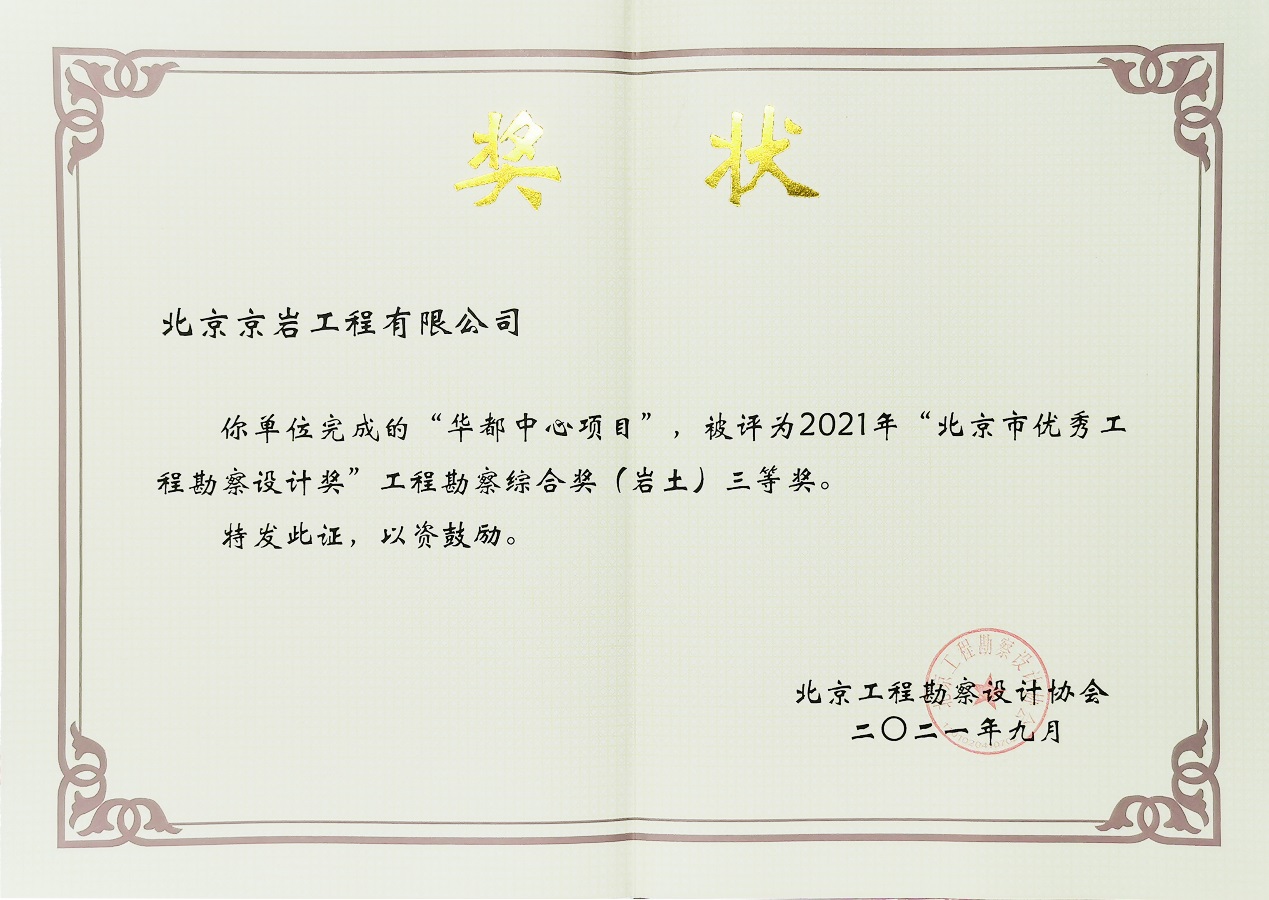 奖状
北京京岩工程有限公司
你单位完成的“华都中心项目”，被评为2021年“北京市优秀工
程勘察设计奖”工程勘察综合奖（岩土）三等奖。
特发此证，以资鼓励。
北京工程勘察设计协会
二〇二一年九月
北京工程勘察设计协会